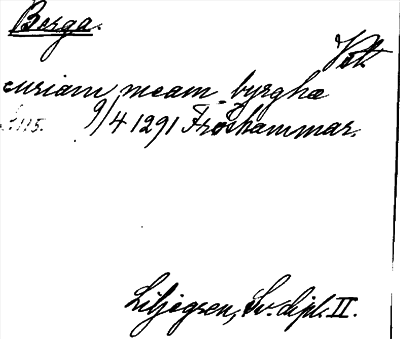 Berga.
Vstk
curiam meam byrghæ
s. 115. 9/4 1291 Fröshammar.
Liljegren, Sv. dipl. II.